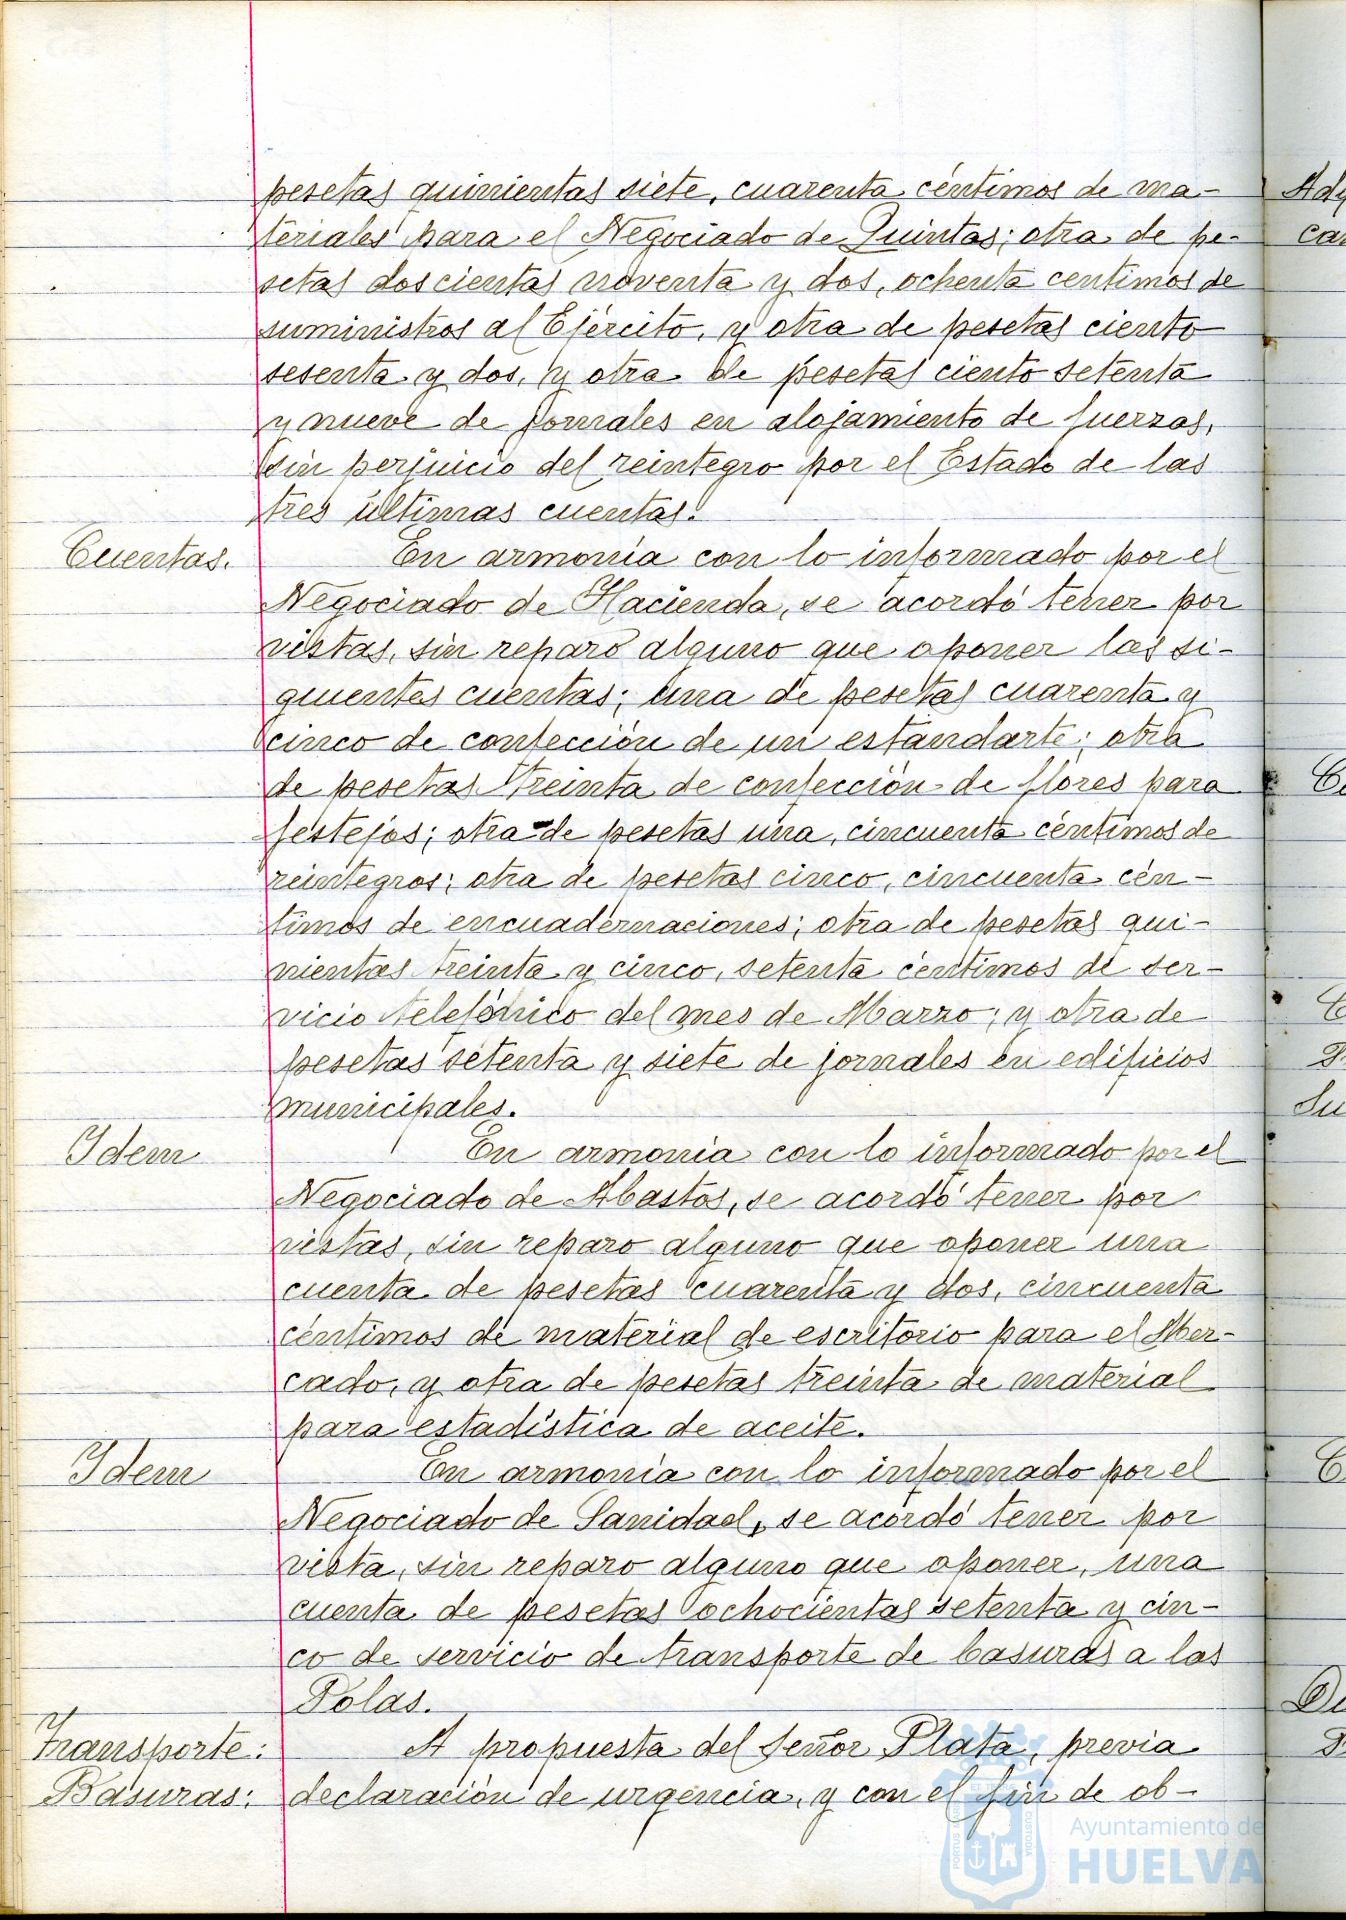 pesetas quinientas siete, cuarenta céntimos de ma-
teriales para el Negociado de Quintas; otra de pe-
setas doscientas noventa y dos, ochenta centimos de
suministros al Ejército, y otra de pesetas ciento
sesenta y dos, y otra de pesetas ciento setenta
y nueve de jornales en alojamiento de fuerzas,
sin perjuicio del reintegro por el Estado de las
tres últimas cuentas.
Cuentas. En armonía con lo informado por el
Negociado de Hacienda, se acordó tener por
vistas, sin reparo alguno que oponer las si-
guientes cuentas; una de pesetas cuarenta y
cinco de confección de un estandarte; otra
de pesetas treinta de confección de flores para
festejos; otra de pesetas una, cincuenta céntimos de
reintegros; otra de pesetas cinco, cincuenta cén-
timos de encuadernaciones; otra de pesetas qui-
nientas treinta y cinco, setenta céntimos de ser-
vicio telefónico del mes de Marzo; y otra de
pesetas setenta y siete de jornales en edificios
municipales.
Idem En armonía con lo informado por el
Negociado de Abastos, se acordó tener por
vistas, sin reparo alguno que oponer una
cuenta de pesetas cuarenta y dos, cincuenta
céntimos de material de escritorio para el Mer-
cado, y otra de pesetas treinta de material
para estadística de aceite.
Idem En armonía con lo informado por el
Negociado de Sanidad, se acordó tener por
vista, sin reparo alguno que oponer, una
cuenta de pesetas ochocientas setenta y cin-
co de servicio de transporte de basuras a las
Polas.
Transporte: A propuesta del Señor Plata, previa
Basuras: declaración de urgencia, y con el fin de ob-
Ayuntamiento de
HUELVA